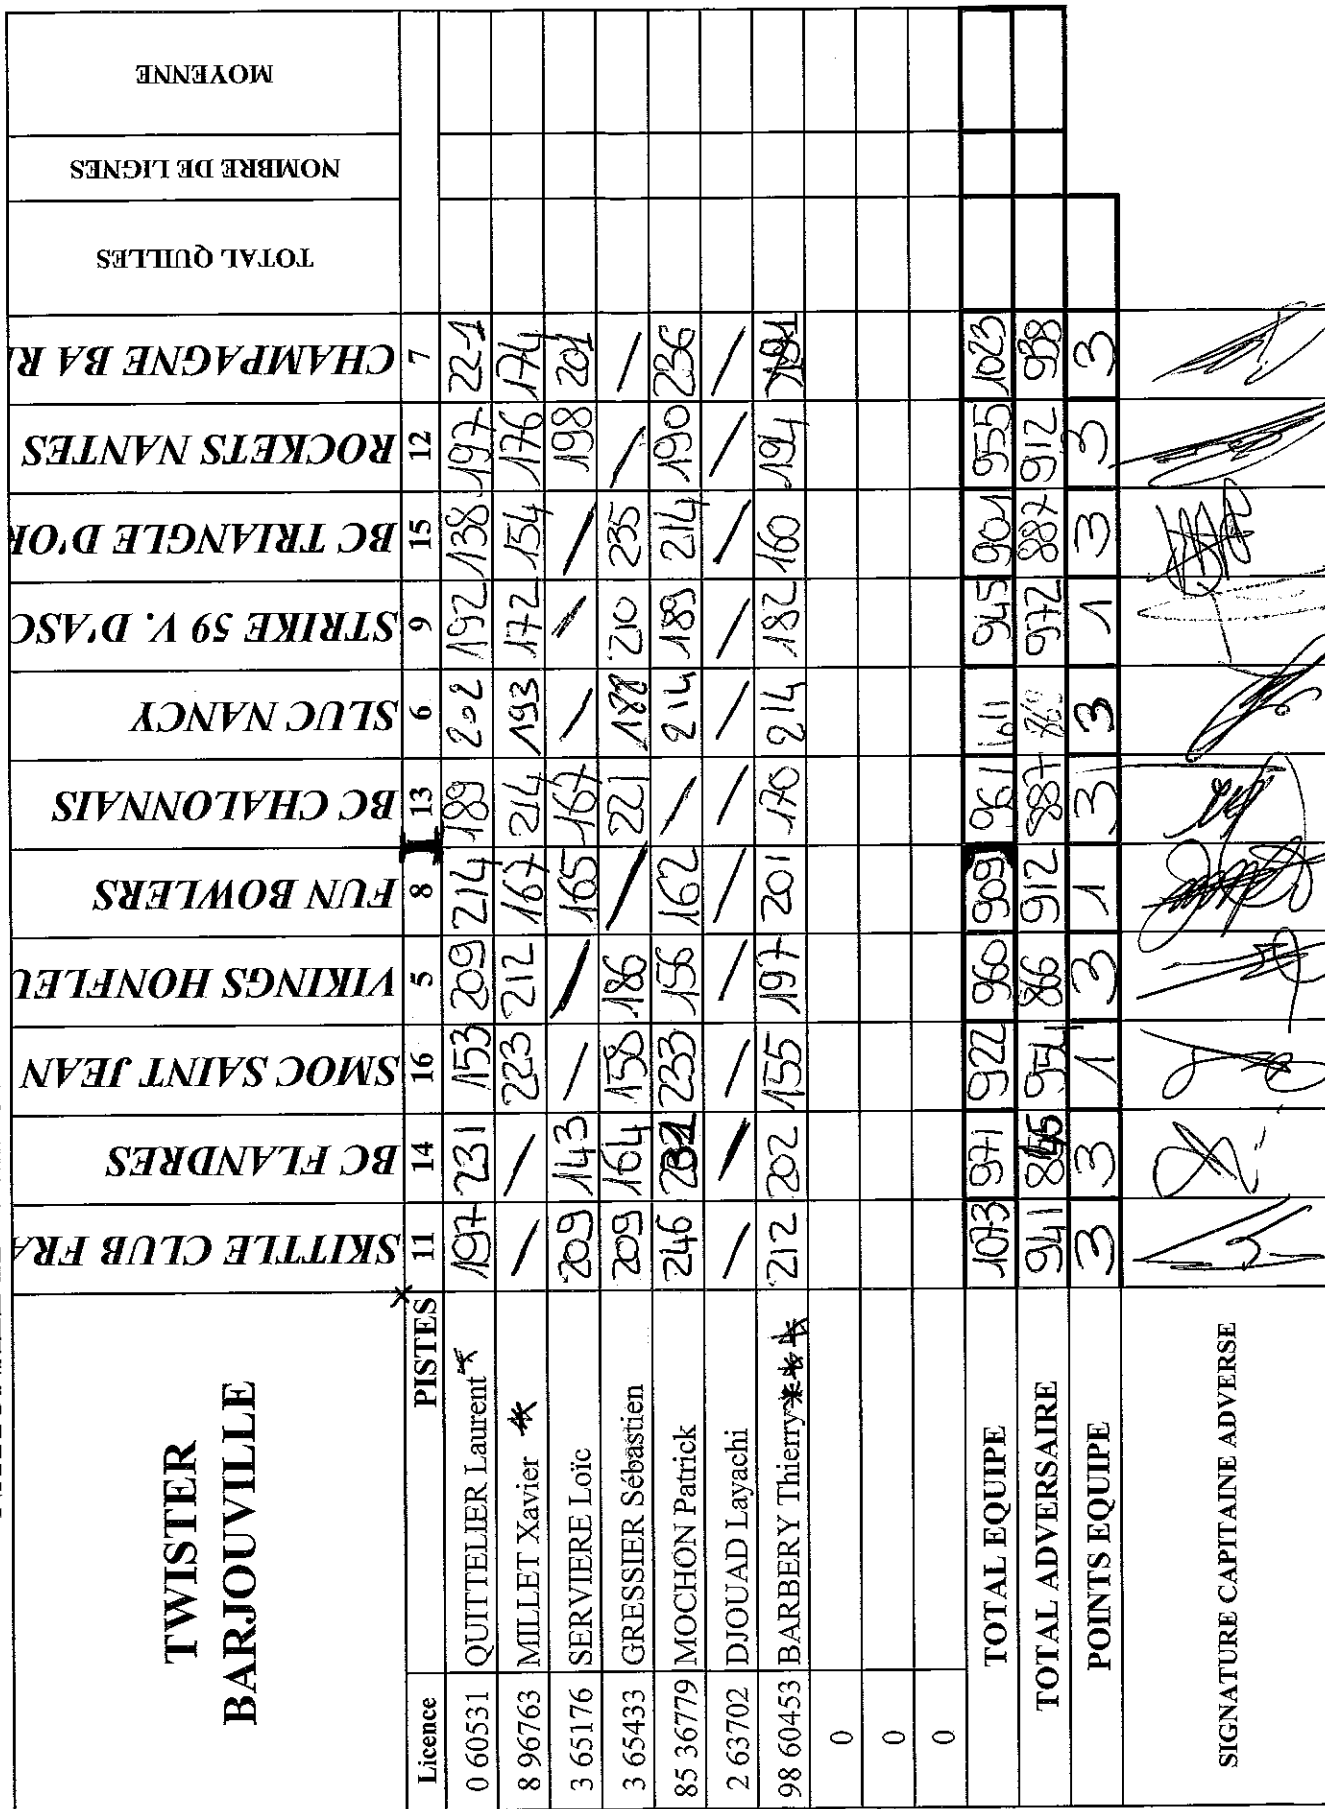 TWISTER
BARJOUVILLE
SKITTLE CLUB FRA
BC FLANDRES
SMOC SAINT JEAN
VIKINGS HONFLEU
FUN BOWLERS
BC CHALONNAIS
SLUC NANCY
STRIKE 59 V. D'ASC
BC TRIANGLE D'OR
ROCKETS NANTES
CHAMPAGNE BA RE
TOTAL QUILLES
NOMBRE DE LIGNES
MOYENNE
Licence PISTES 11 14 16 5 8 13 6 9 15 12 7
0 60531 QUITTELIER Laurent * 197 231 153 209 214 189 202 192 138 197 221
8 96763 MILLET Xavier * / / 223 212 167 214 193 172 154 176 174
3 65176 SERVIERE Loïc 209 143 / / 165 167 / / / 198 201
3 65433 GRESSIER Sébastien 209 164 158 186 / 221 188 210 235 / /
85 36779 MOCHON Patrick 246 231 233 156 162 / 214 189 214 190 236
2 63702 DJOUAD Layachi / / / / / / / / / / /
98 60453 BARBERY Thierry *** 212 202 155 197 201 170 214 182 160 194 191
0
0
0
TOTAL EQUIPE 1073 971 922 960 909 961 1011 945 901 955 1023
TOTAL ADVERSAIRE 941 954 866 912 887 972 887 912 938
POINTS EQUIPE 3 3 1 3 1 3 3 1 3 3 3
SIGNATURE CAPITAINE ADVERSE